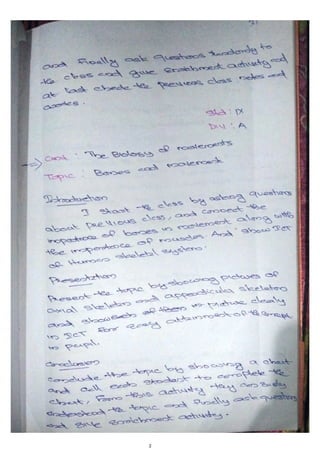 and finally ask questions randomly to
the class and give enrichment activity and
at last check the previous class notes and
Std : IX
Div : A
Unit : The Biology of movements
Topic : Bones and movement
Introduction
I start the class by asking questions
about previous class, and connect the
importance of bones in movement along with
the importance of muscles And show ICT
of Human skeletal system.
Presentation
Present the topic by showing pictures of
axial skeleton and appendicular skeleton
and show each of them in picture clearly
in ICT for easy attainment of the concept
in pupil.
Conclusion
Conclude the topic by showing a chart
and call each student to complete the
chart, From this activity they can easily
understand the topic and finally ask question
and give enrichment activity.
2